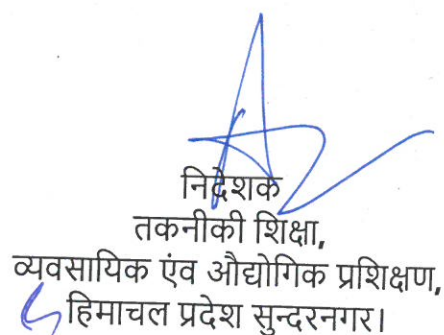 निदेशक
तकनीकी शिक्षा,
व्यवसायिक एंव औद्योगिक प्रशिक्षण,
हिमाचल प्रदेश सुन्दरनगर।